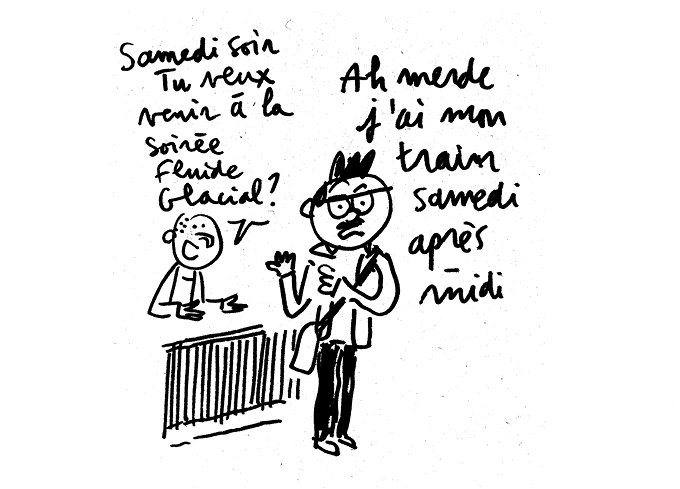 Samedi soir
Tu veux
venir à la
soirée
Fluide
Glacial?
Ah merde
j'ai mon
train
samedi
après
-midi